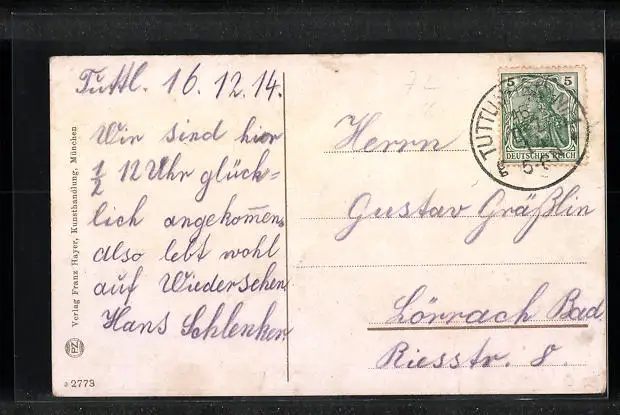 Tuttl. 16.12.14.
Wir sind hier
1/2 12 Uhr glück=
lich angekommen,
also lebt wohl
auf Wiedersehen
Hans Schlenker
Herrn
Gustav Gräßlin
Lörrach Bad
Riesstr. 8.
5 5
DEUTSCHES REICH
TUTTLI
5-6
Verlag Franz Hayer, Kunsthandlung, München
PZ
2773